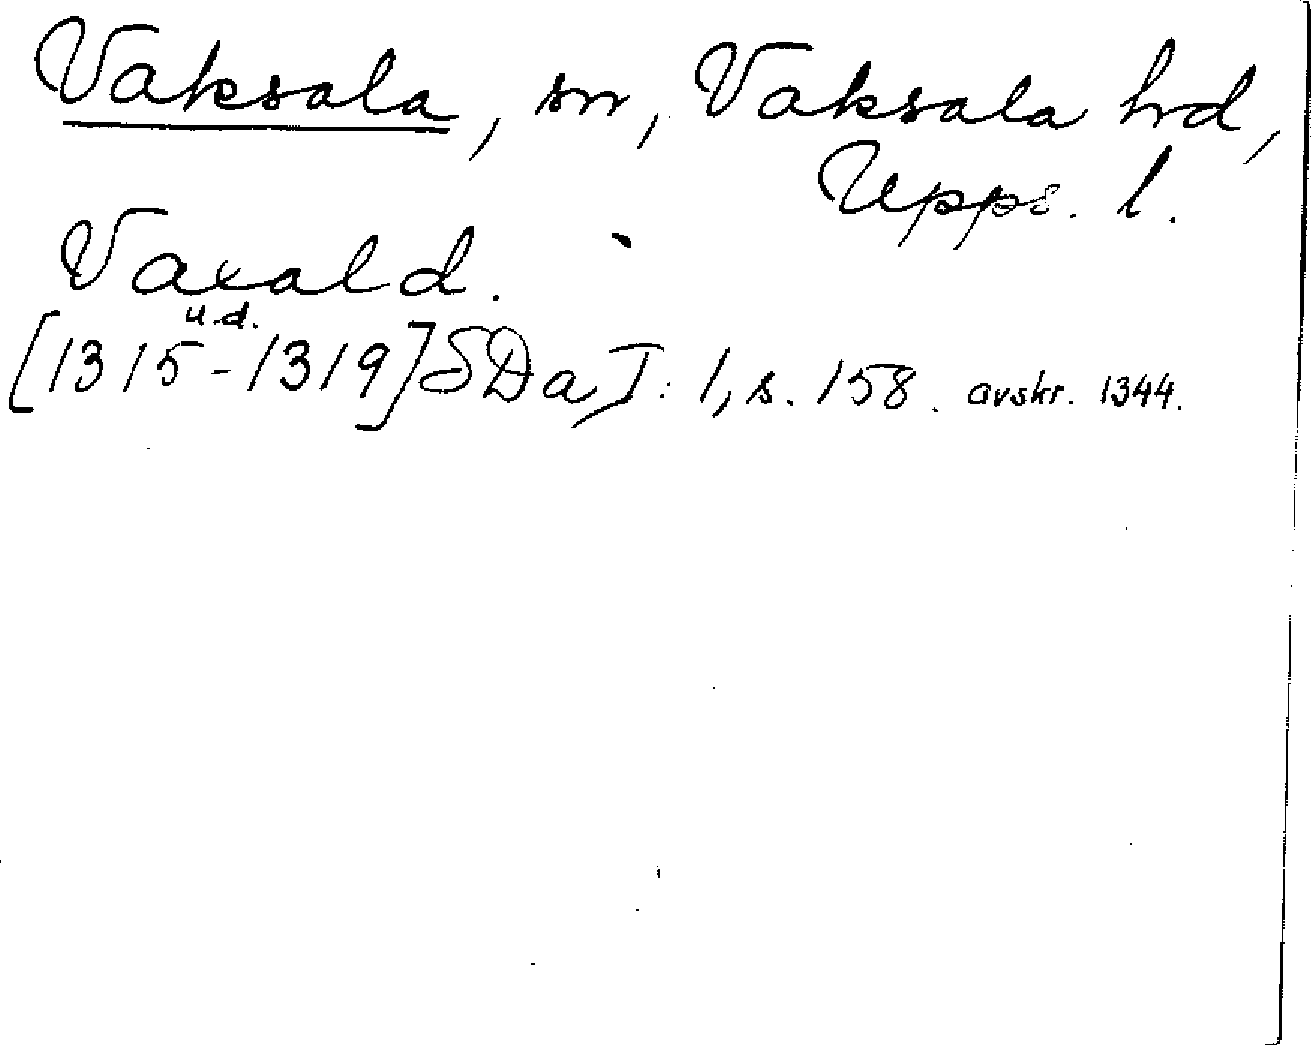 Vaksala, sn, Vaksala hd,
Upps. l.
Vaxald.
u.d.
[1315-1319] SDa I:1, s. 158. avskr. 1344.